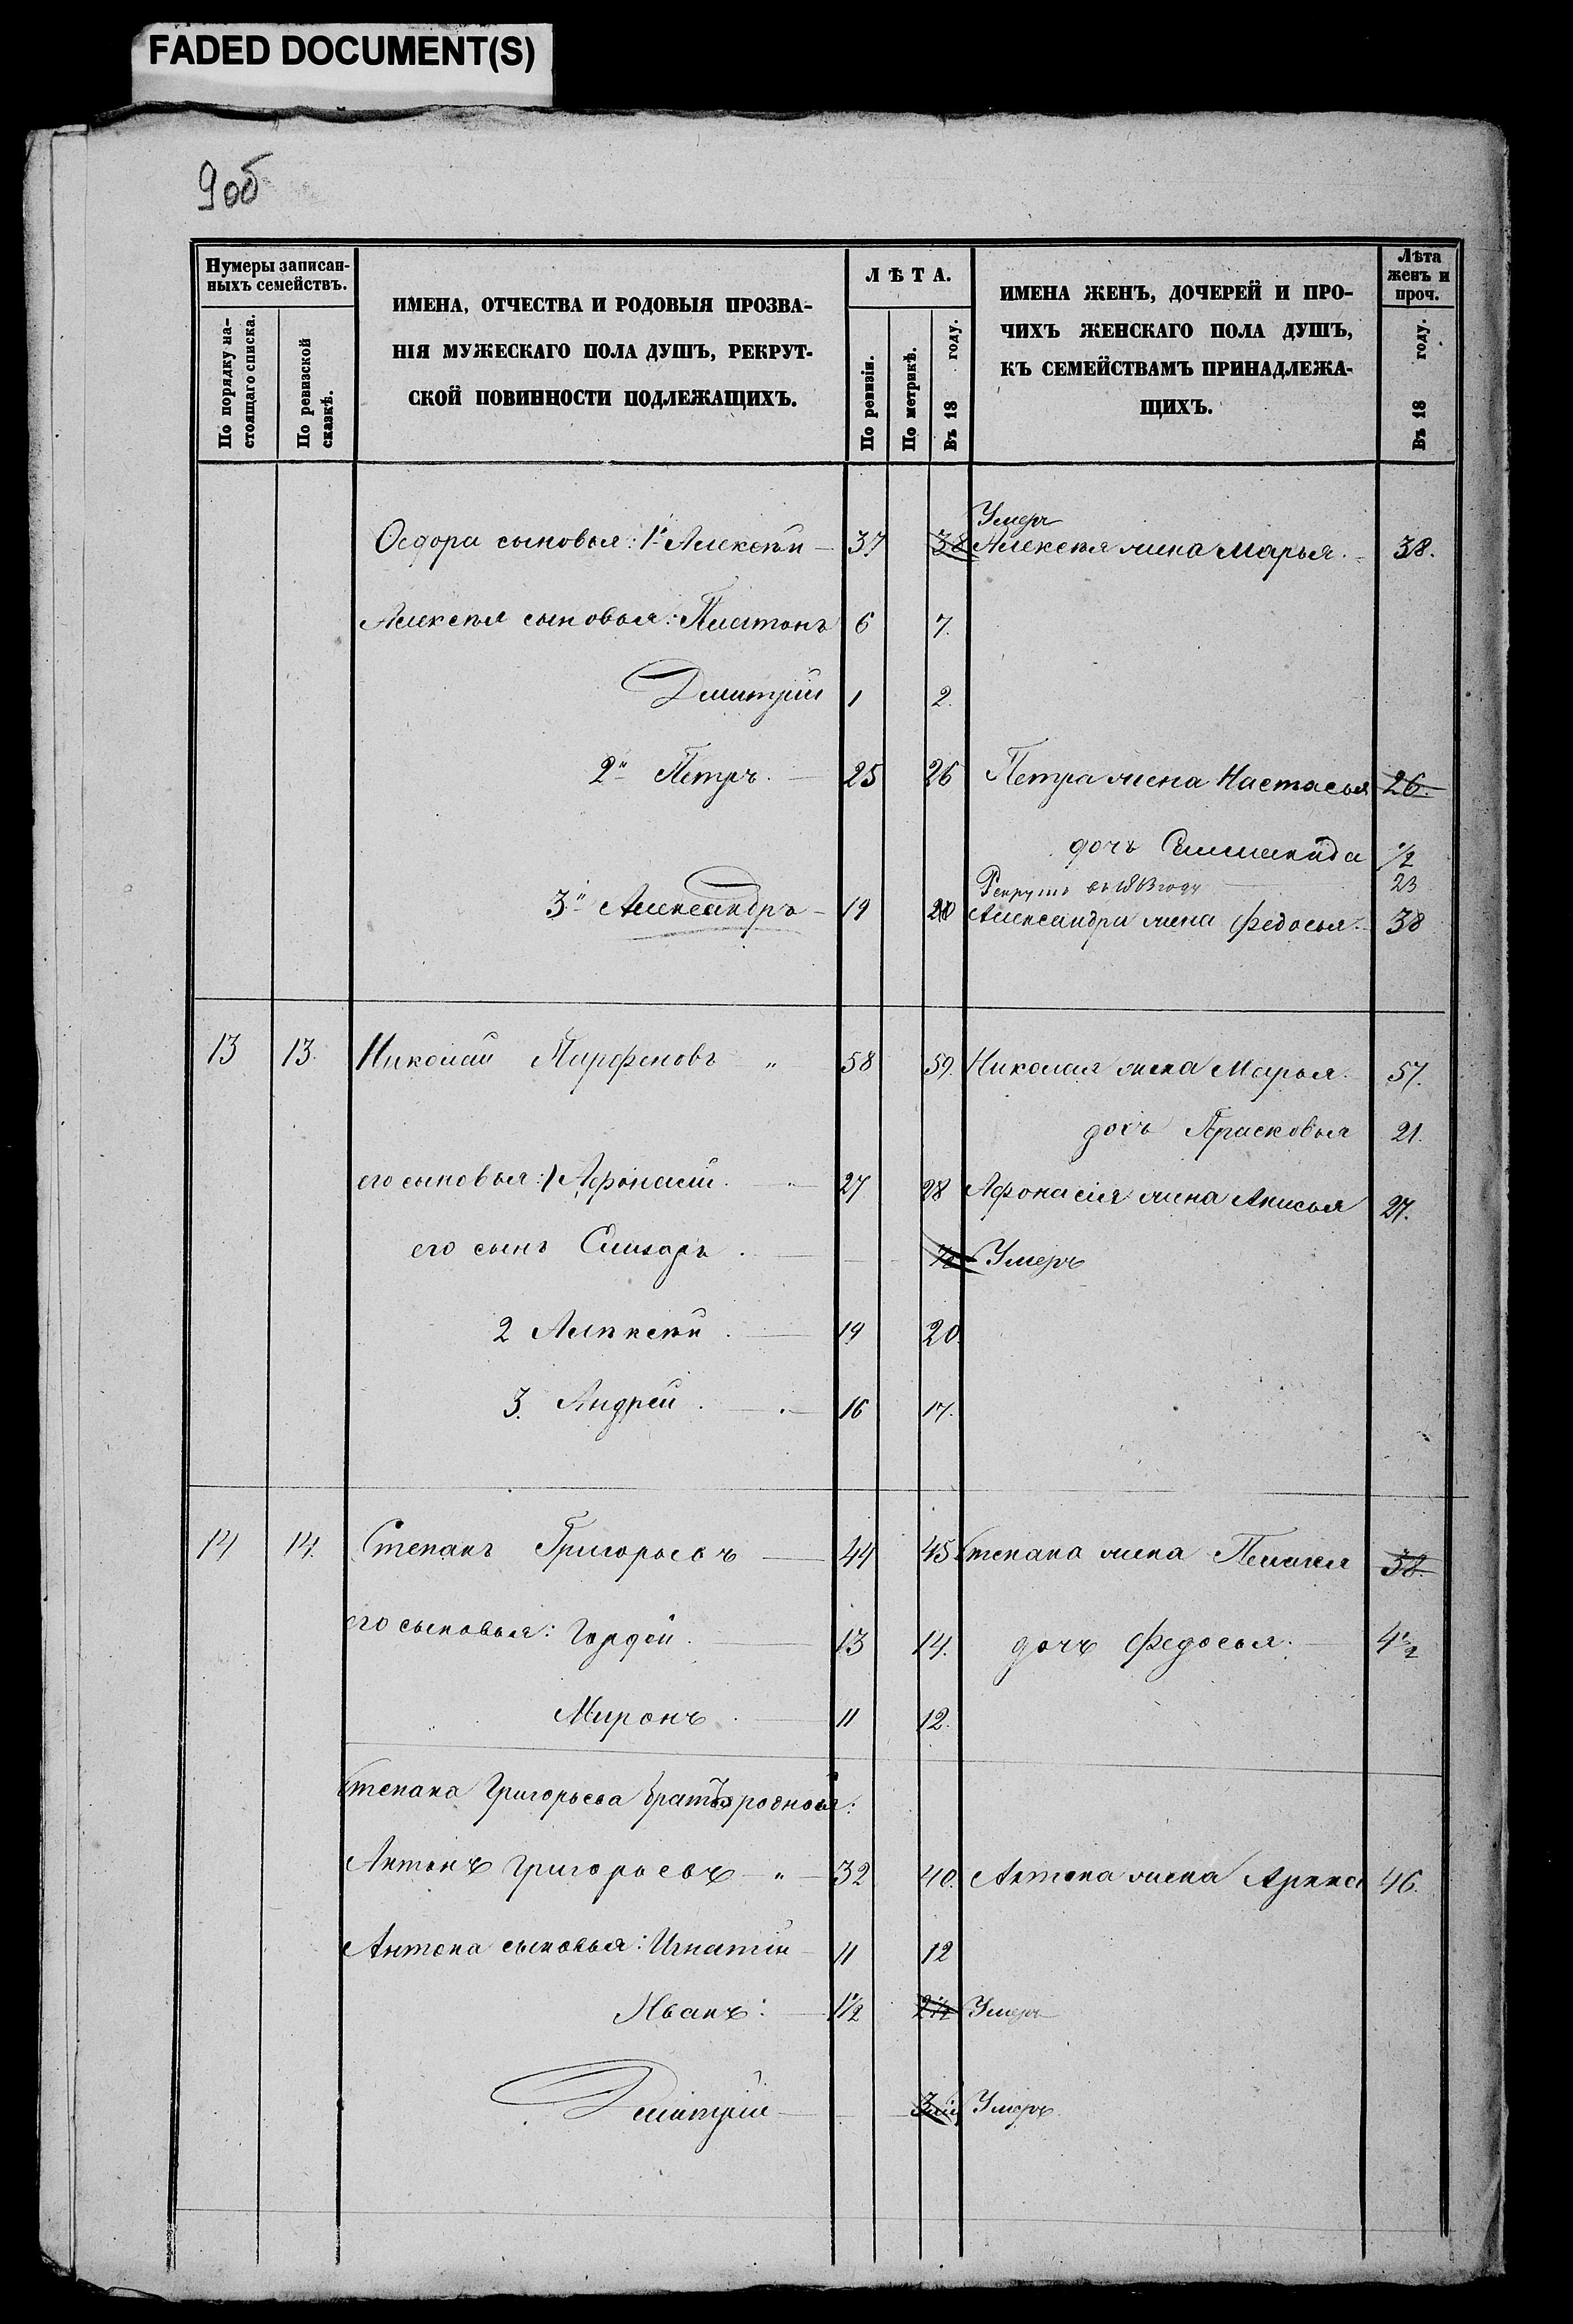 FADED DOCUMENT(S)
9 об
Нумеры записан-
ныхъ семействъ.
По порядку на-
стоящаго списка.
По ревизской
сказкѣ.
ИМЕНА, ОТЧЕСТВА И РОДОВЫЯ ПРОЗВА-
НІЯ МУЖЕСКАГО ПОЛА ДУШЪ, РЕКРУТ-
СКОЙ ПОВИННОСТИ ПОДЛЕЖАЩИХЪ.
ЛѢТА.
По ревизіи.
По метрикѣ.
Въ 18 году.
ИМЕНА ЖЕНЪ, ДОЧЕРЕЙ И ПРО-
ЧИХЪ ЖЕНСКАГО ПОЛА ДУШЪ,
КЪ СЕМЕЙСТВАМЪ ПРИНАДЛЕЖА-
ЩИХЪ.
Лѣта
женъ и
проч.
Въ 18 году.
Умеръ
Ѳедора сыновья: 1й Алексѣй 37 38 Алексѣя жена Марья. 38.
Алексѣя сыновья: Платонъ 6 7.
Дмитрій 1 2.
2й Петръ. 25 26 Петра жена Настасья 26.
дочь 1/2
Рекрутъ въ 1863 году 23
3й Александръ 19 20 Александра жена Федосья. 38
13 13. Николай Парфеновъ " 58 59. Николая жена Марья. 57.
дочь Прасковья 21.
его сыновья: 1 Афонасій. 27 28 Афонасія жена Анисья 27.
его сынъ . 1/2 Умеръ
2 Алѣксѣй . 19 20.
3. Андрей . 16 17.
14 14. Степанъ Григорьевъ 44 45 Степана жена Пелагея 38.
его сыновья: Гордѣй. 13 14. дочь Федосья. 4 1/2
Миронъ . 11 12.
Степана Григорьева братья родныя:
Антонъ Григорьевъ " 32 40. Антона жена Арина 46.
Антона сыновья: Игнатій 11 12
Иванъ: 1 1/2 2 1/2 Умеръ
Дмитрій Умеръ.